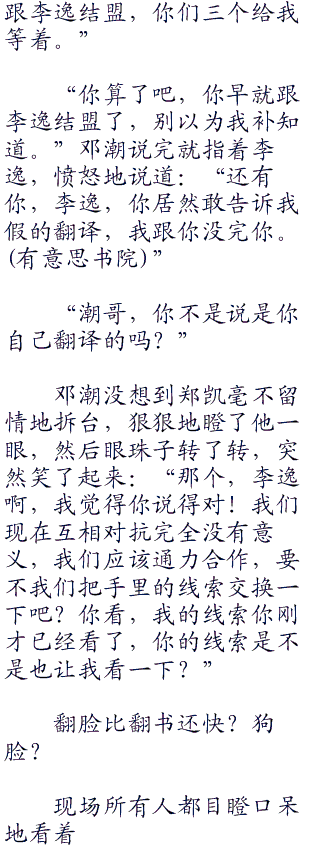 跟李逸结盟，你们三个给我
等着。”
“你算了吧，你早就跟
李逸结盟了，别以为我补知
道。”邓潮说完就指着李
逸，愤怒地说道：“还有
你，李逸，你居然敢告诉我
假的翻译，我跟你没完你。
(有意思书院)”
“潮哥，你不是说是你
自己翻译的吗？”
邓潮没想到郑凯毫不留
情地拆台，狠狠地瞪了他一
眼，然后眼珠子转了转，突
然笑了起来：“那个，李逸
啊，我觉得你说得对！我们
现在互相对抗完全没有意
义，我们应该通力合作，要
不我们把手里的线索交换一
下吧？你看，我的线索你刚
才已经看了，你的线索是不
是也让我看一下？”
翻脸比翻书还快？狗
脸？
现场所有人都目瞪口呆
地看着